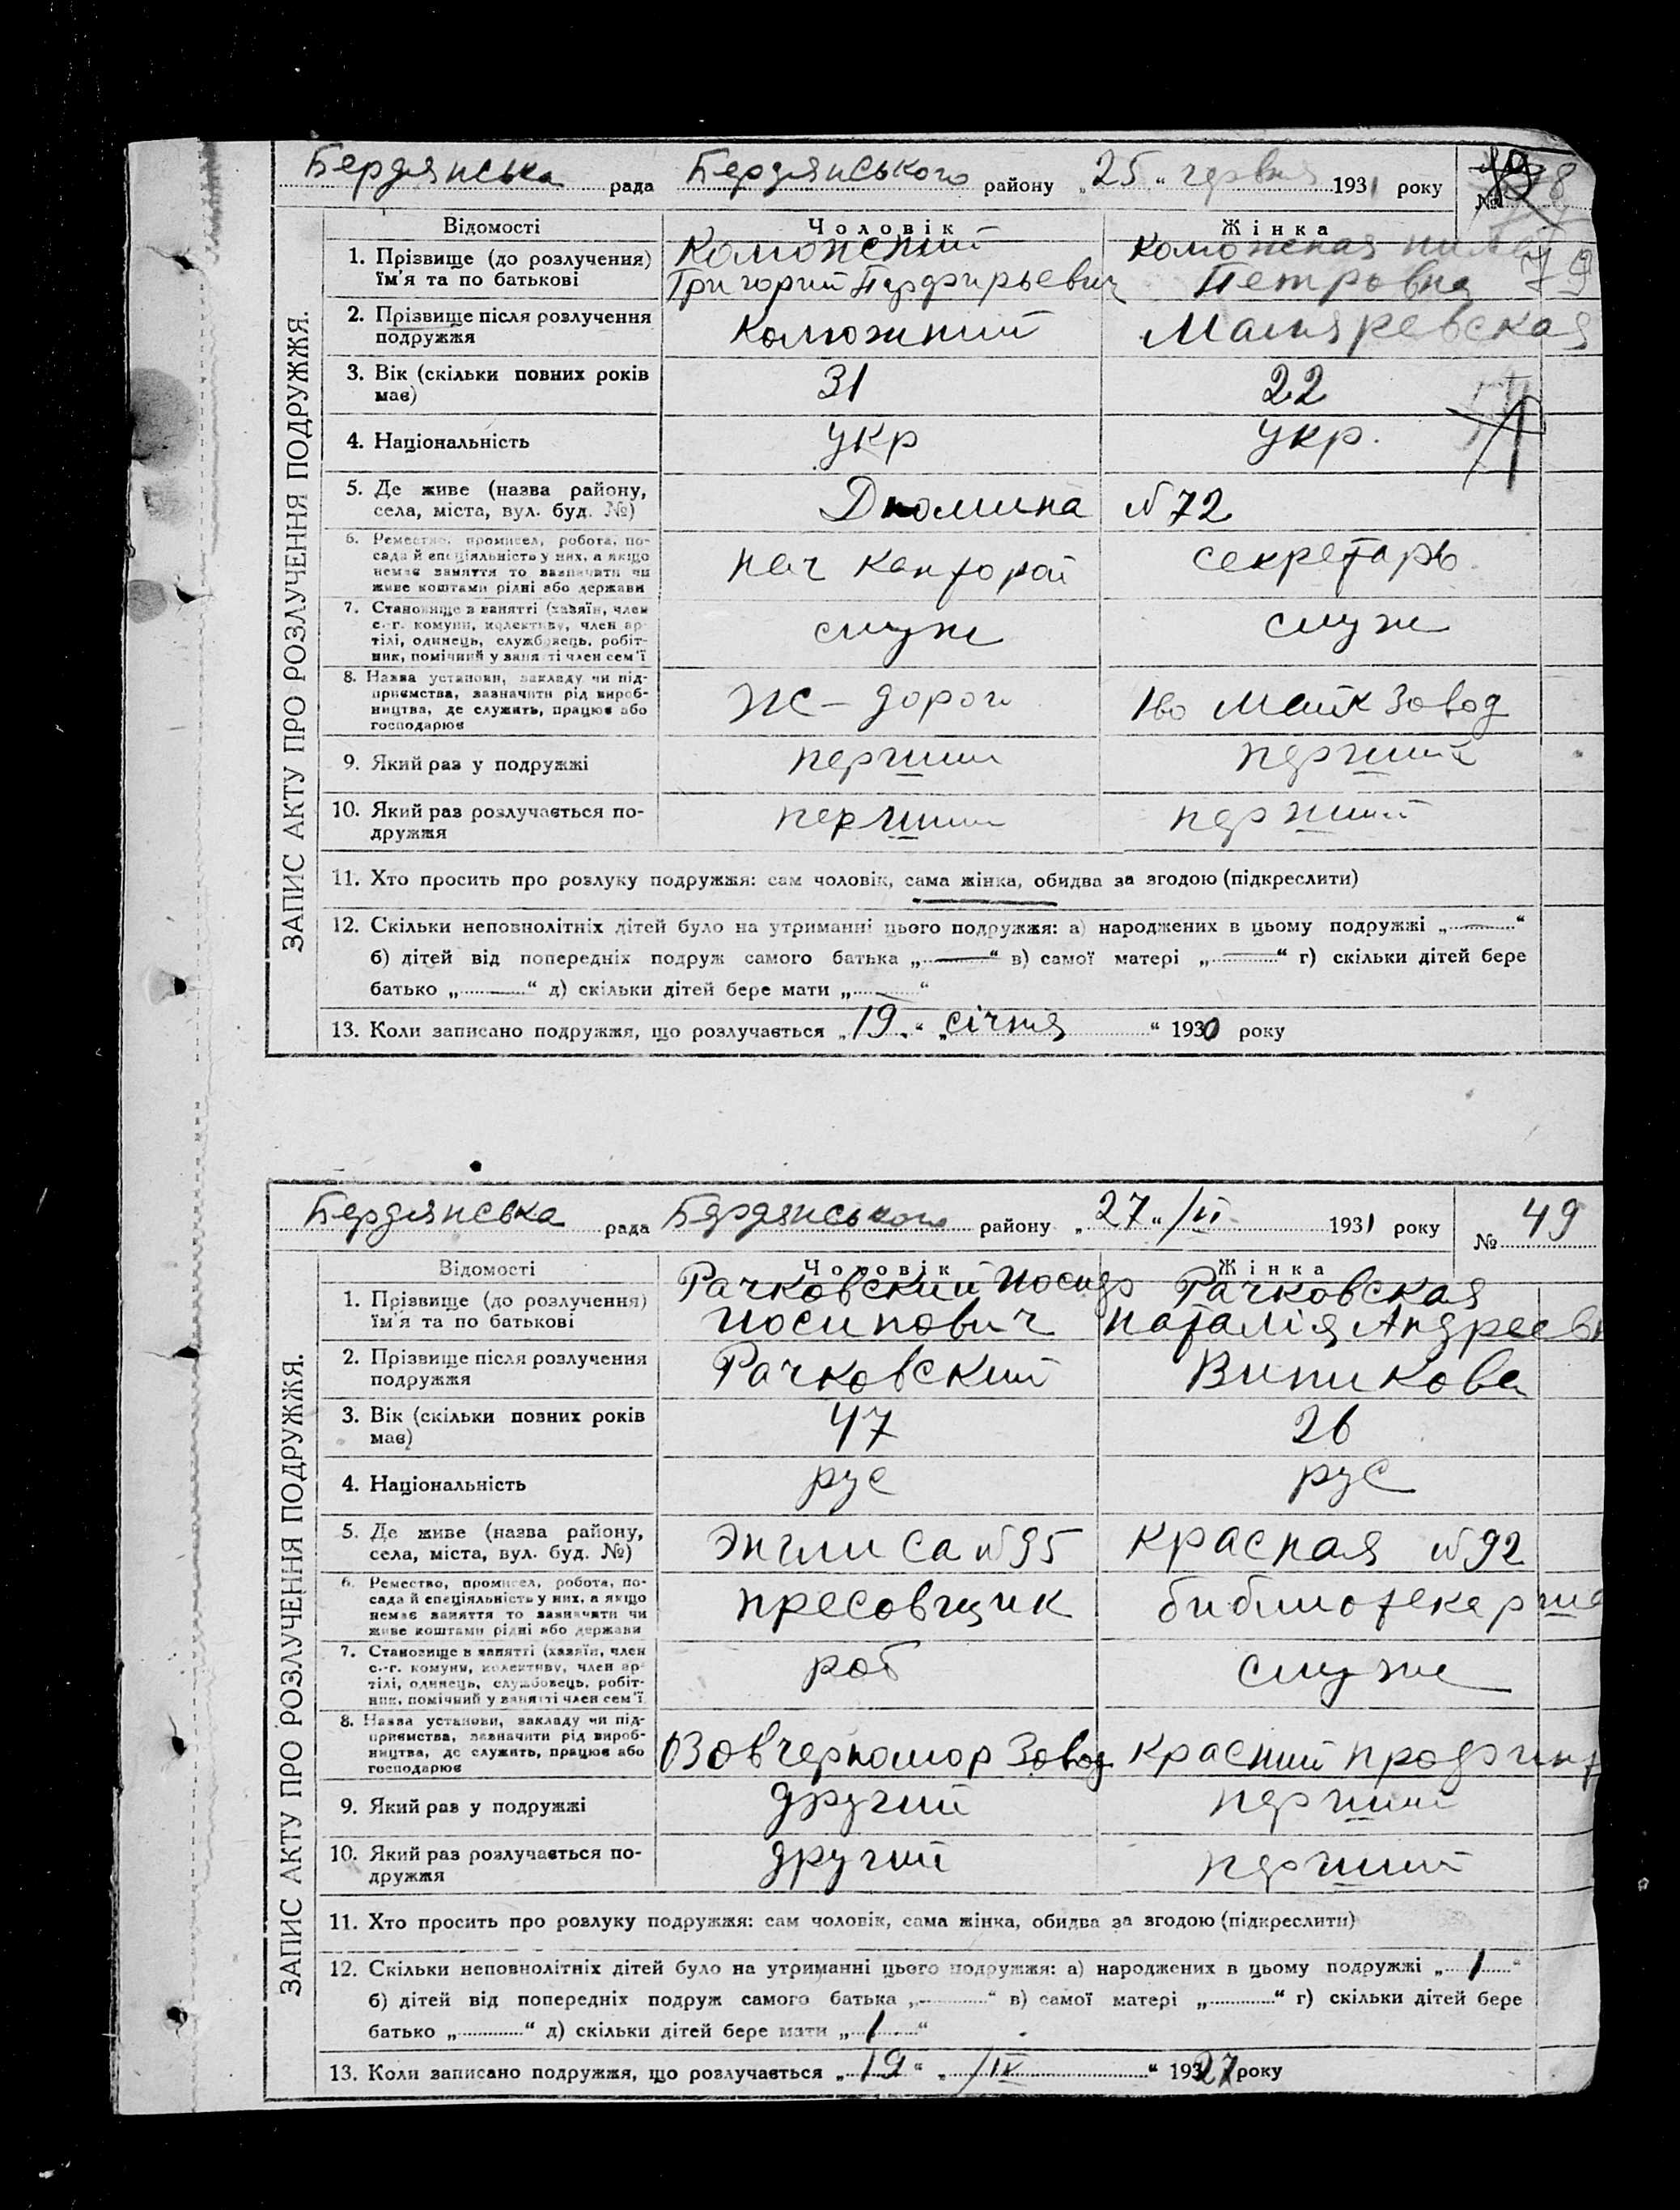 ЗАПИС АКТУ ПРО РОЗЛУЧЕННЯ ПОДРУЖЖЯ.
Бердянська рада Бердянського району „25“ червня 1931 року № 48
Відомості Чоловік Жінка
1. Прізвище (до розлучення) їм'я та по батькові
Григорий Парфирьевич
Петровна
2. Прізвище після розлучення подружжя
3. Вік (скільки повних років має) 31 22
4. Національність укр укр.
5. Де живе (назва району, села, міста, вул. буд. №) Дюмина №72
6. Ремество, промисел, робота, посада й спеціяльність у них, а якщо немає заняття то зазначити чи живе коштами рідні або держави нач конторой секретарь
7. Становище в занятті (хазяїн, член с.-г. комуни, колективу, член артілі, одинець, службовець, робітник, помічний у занятті член сем'ї служ служ
8. Назва установи, закладу чи підприємства, зазначити рід виробництва, де служить, працює або господарює Ж-дорога Завод
9. Який раз у подружжі перший перший
10. Який раз розлучається подружжя перший перший
11. Хто просить про розлуку подружжя: сам чоловік, сама жінка, обидва за згодою (підкреслити)
12. Скільки неповнолітніх дітей було на утриманні цього подружжя: а) народжених в цьому подружжі „—“
б) дітей від попередніх подруж самого батька „—“ в) самої матері „—“ г) скільки дітей бере
батько „—“ д) скільки дітей бере мати „—“
13. Коли записано подружжя, що розлучається „19“ „січня“ 1930 року
ЗАПИС АКТУ ПРО РОЗЛУЧЕННЯ ПОДРУЖЖЯ.
Бердянська рада Бердянського району „27“ /VI 1931 року № 49
Відомості Чоловік Жінка
1. Прізвище (до розлучення) їм'я та по батькові
Рачковский Иосиф Рачковская
Иосипович Наталія Андреевн
2. Прізвище після розлучення подружжя Рачковский
3. Вік (скільки повних років має) 47 26
4. Національність рус рус
5. Де живе (назва району, села, міста, вул. буд. №) Энглиса №95 Красная №92
6. Ремество, промисел, робота, посада й спеціяльність у них, а якщо немає заняття то зазначити чи живе коштами рідні або держави пресовщик библиотекарша
7. Становище в занятті (хазяїн, член с.-г. комуни, колективу, член артілі, одинець, службовець, робітник, помічний у занятті член сем'ї роб служ
8. Назва установи, закладу чи підприємства, зазначити рід виробництва, де служить, працює або господарює Завод Красний Профинт
9. Який раз у подружжі другий перший
10. Який раз розлучається подружжя другий перший
11. Хто просить про розлуку подружжя: сам чоловік, сама жінка, обидва за згодою (підкреслити)
12. Скільки неповнолітніх дітей було на утриманні цього подружжя: а) народжених в цьому подружжі „1“
б) дітей від попередніх подруж самого батька „ “ в) самої матері „ “ г) скільки дітей бере
батько „ “ д) скільки дітей бере мати „1“
13. Коли записано подружжя, що розлучається „19“ „/IX“ 1927 року